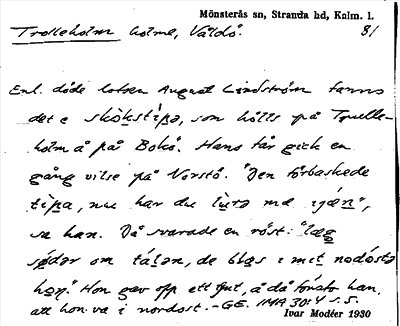 Mönsterås sn, Stranda hd, Kalm. l.
Trolleholm holme, Vållö. 81
Enl. döde lotsen August Lindström fanns
det e skòkstìpə, som hölls på Trolle-
holm å på Bokö. Hans får gick en
gång vilse på Norstö. "Den förbaskede
tìpa, nu har du lùra me ijæn",
sa han. Då svarade en röst: "læg
södər om tálən, de blås i mit nodösta
han." Hon gav opp ett tjut, å då förstod han,
att hon va i nordost. – GE. IMA 30:4 s.5.
Ivar Modéer 1930